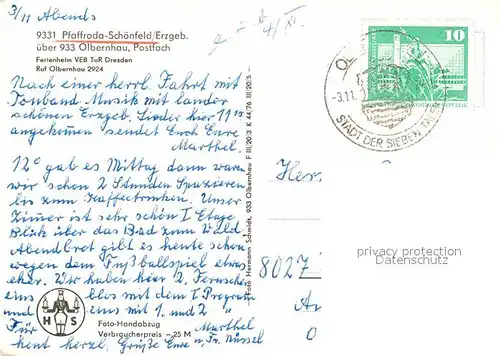 3/11 Abends
9331 Pfaffroda-Schönfeld/Erzgeb.
über 933 Olbernhau, Postfach
Ferienheim VEB TuR Dresden
Ruf Olbernhau 2924
Nach einer herrl. Fahrt mit
Tonband Musik mit lauter
schönen Erzgeb. Lieder hier 11°°
angekommen sendet Euch Eure
Marthel.
12° gab es Mittag dann waren
wir schon 2 Stunden Spazieren
bis zum Kaffeetrinken. Unser
Zimmer ist sehr schön I Etage
Blick über das Bad zum Wald
Abendbrot gibt es heute schon
wegen dem Fußballspiel etwas
eher. Wir haben hier 2. Fernseher
eins blos mit dem I Program
eins mit 1. und 2"
Für Marthel
heut herzl. Grüße Eure u. Fr. Nüssel
H S
Foto-Handabzug
Verbraucherpreis -,25 M
Foto Hermann Schmidt, 933 Olbernhau F III/20/3 K 44/76 III/20/5
10
-3.11.
STADT DER SIEBEN
Her
8027
privacy protection
Datenschutz